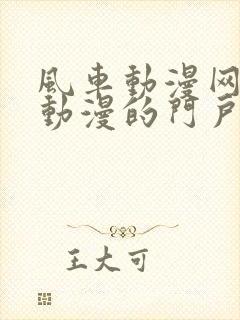 風車動漫网
動漫的門戶
王大可